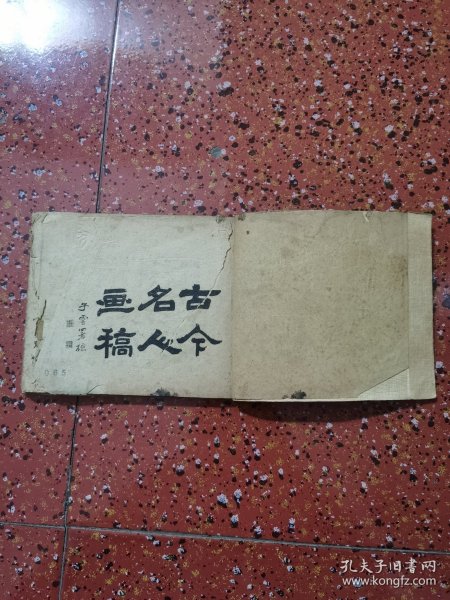 古今
名人
画稿
子云署檢
065
孔夫子旧书网
www.kongfz.com